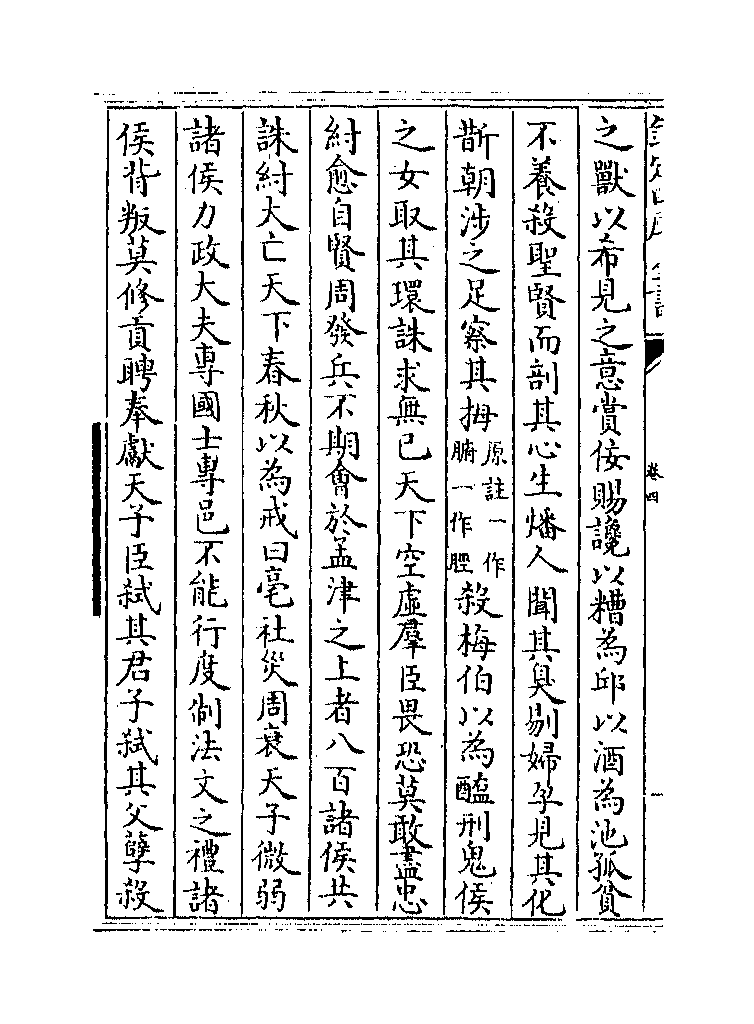 之獸以希見之意賞佞賜讒以糟為邱以酒為池孤貧
不養殺聖賢而剖其心生燔人聞其臭剔婦孕見其化
斮朝涉之足察其拇原註一作腑一作脛殺梅伯以為醢刑鬼侯
之女取其環誅求無已天下空虛羣臣畏恐莫敢盡忠
紂愈自賢周發兵不期會於孟津之上者八百諸侯共
誅紂大亡天下春秋以為戒曰亳社災周衰天子微弱
諸侯力政大夫專國士專邑不能行度制法文之禮諸
侯背叛莫修貢聘奉獻天子臣弑其君子弑其父孽殺
卷四